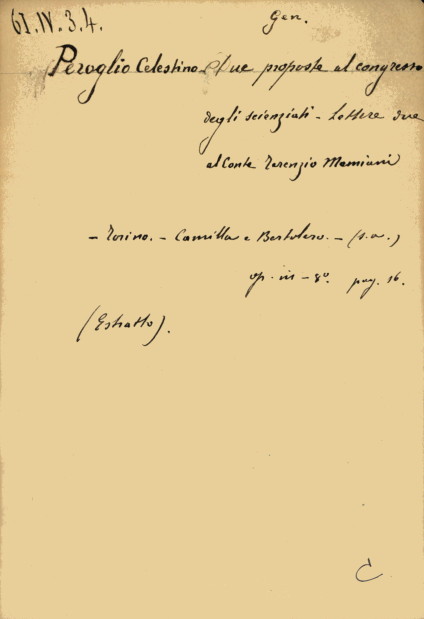 61.IV.3.4.
Gen.
Peroglio Celestino - Due proposte al congresso
degli scienziati - Lettere due
al Conte Terenzio Mamiani
- Torino. - Camilla e Bertolero. - (s.a.)
op. in - 8º. pag. 16.
(Estratto).
C